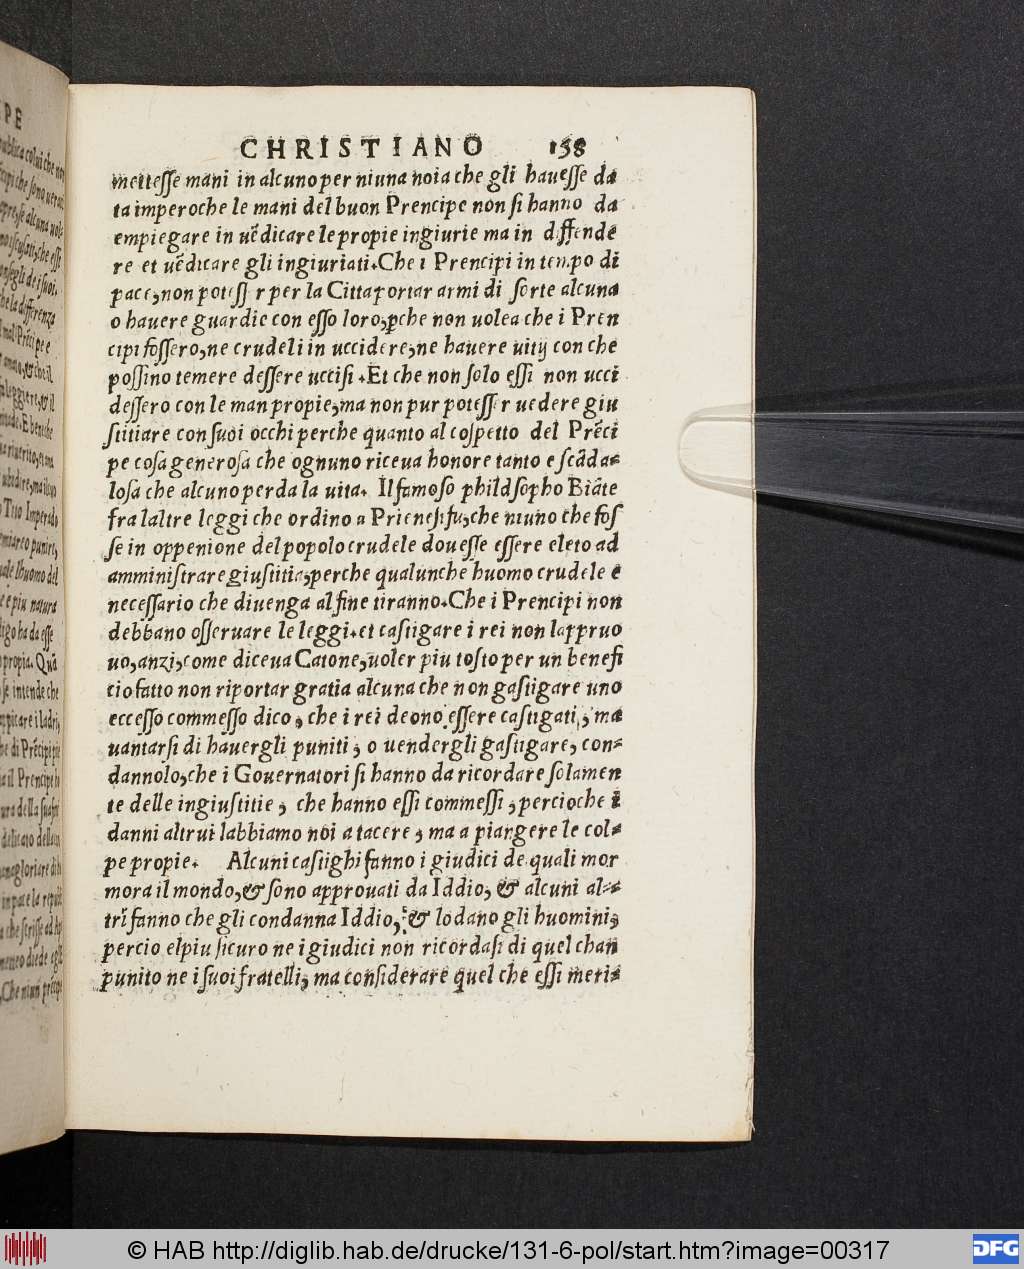 CHRISTIANO 158
mettesse mani in alcuno per niuna noia che gli hauesse da
ta imperoche le mani del buon Prencipe non si hanno da
empiegare in uēdicare le propie ingiurie ma in diffende
re et uēdicare gli ingiuriati.Che i Prencipi in tempo di
pace,non potesser per la Citta portar armi di sorte alcuna
o hauere guardie con esso loro,ꝑche non uolea che i Pren
cipi fossero,ne crudeli in uccidere,ne hauere uitij con che
possino temere dessere uccisi.Et che non solo essi non ucci
dessero con le man propie,ma non pur potesser uedere giu
stitiare con suoi occhi perche quanto al cospetto del Prēci
pe cosa generosa che ognuno riceua honore tanto e scāda-
losa che alcuno perda la uita. Il famoso philosopho Biāte
fra laltre leggi che ordino a Prienesi fu,che niuno che fos
se in oppenione del popolo crudele douesse essere eleto ad
amministrare giustitia,perche qualunche huomo crudele e
necessario che diuenga al fine tiranno.Che i Prencipi non
debbano osseruare le leggi.et castigare i rei non lappruo
uo,anzi,come diceua Catone,uoler piu tosto per un benefi
cio fatto non riportar gratia alcuna che non gastigare uno
eccesso commesso dico, che i rei deono essere castigati, ma
uantarsi di hauergli puniti, o uendergli gastigare, con-
dannolo,che i Gouernatori si hanno da ricordare solamen
te delle ingiustitie, che hanno essi commessi, percioche i
danni altrui labbiamo noi a tacere, ma a piangere le col-
pe propie. Alcuni castighi fanno i giudici de quali mor
mora il mondo,& sono approuati da Iddio, & alcuni al-
tri fanno che gli condanna Iddio, & lodano gli huomini,
percio elpiu sicuro ne i giudici non ricordasi di quel chan
punito ne i suoi fratelli, ma considerare quel che essi meri-
© HAB http://diglib.hab.de/drucke/131-6-pol/start.htm?image=00317
DFG